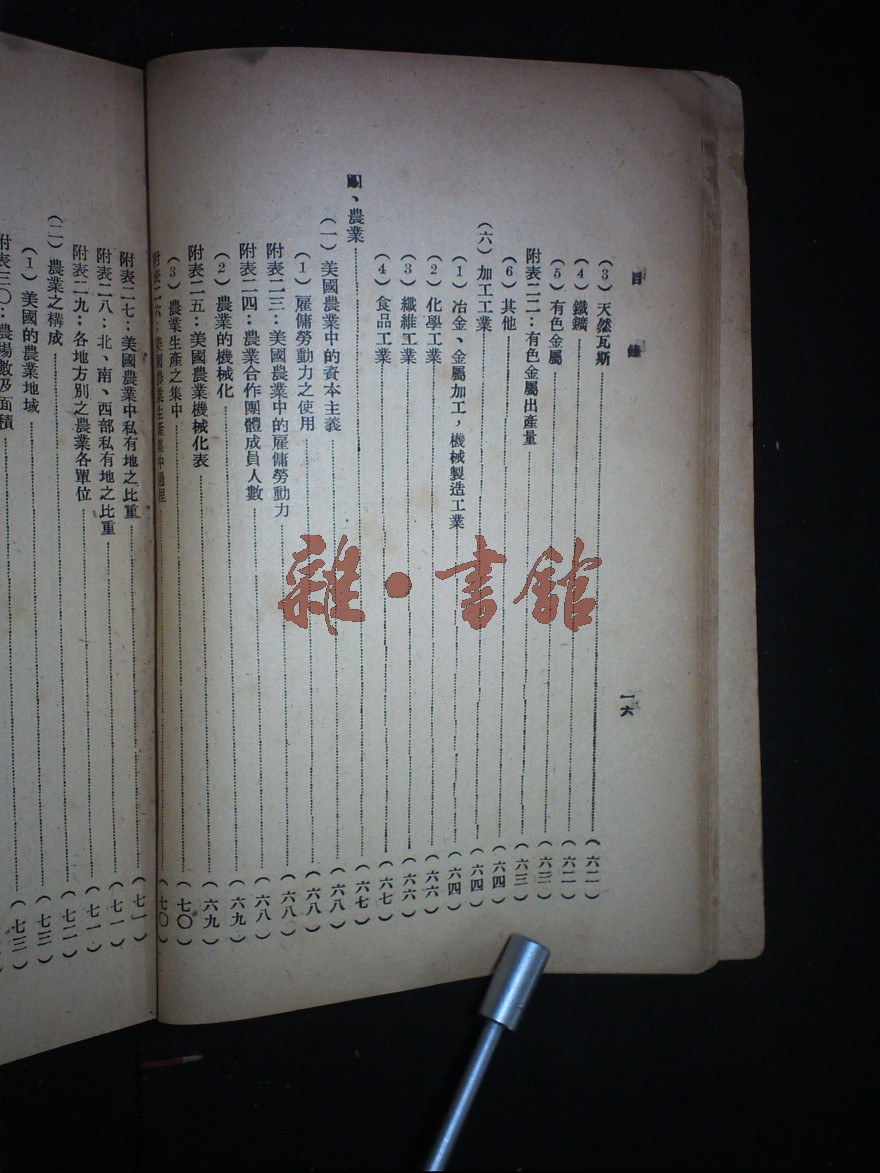 目錄
一六
(3)天然瓦斯……(六二)
(4)鐵鑛……(六二)
(5)有色金屬……(六三)
附表二二：有色金屬出產量……(六三)
(6)其他……(六四)
(六)加工工業……(六四)
(1)冶金、金屬加工，機械製造工業……(六四)
(2)化學工業……(六六)
(3)纖維工業……(六六)
(4)食品工業……(六七)
四、農業……(六七)
(一)美國農業中的資本主義……(六八)
(1)雇傭勞動力之使用……(六八)
附表二三：美國農業中的雇傭勞動力……(六八)
附表二四：農業合作團體成員人數……(六八)
(2)農業的機械化……(六九)
附表二五：美國農業機械化表……(六九)
(3)農業生產之集中……(七〇)
附表二六：美國農業生產集中過程……(七〇)
附表二七：美國農業中私有地之比重……(七一)
附表二八：北、南、西部私有地之比重……(七一)
附表二九：各地方別之農業各單位……(七一)
(二)農業之構成……(七二)
(1)美國的農業地域……(七三)
附表三〇：農場數及面積……(七三)
雜·書館